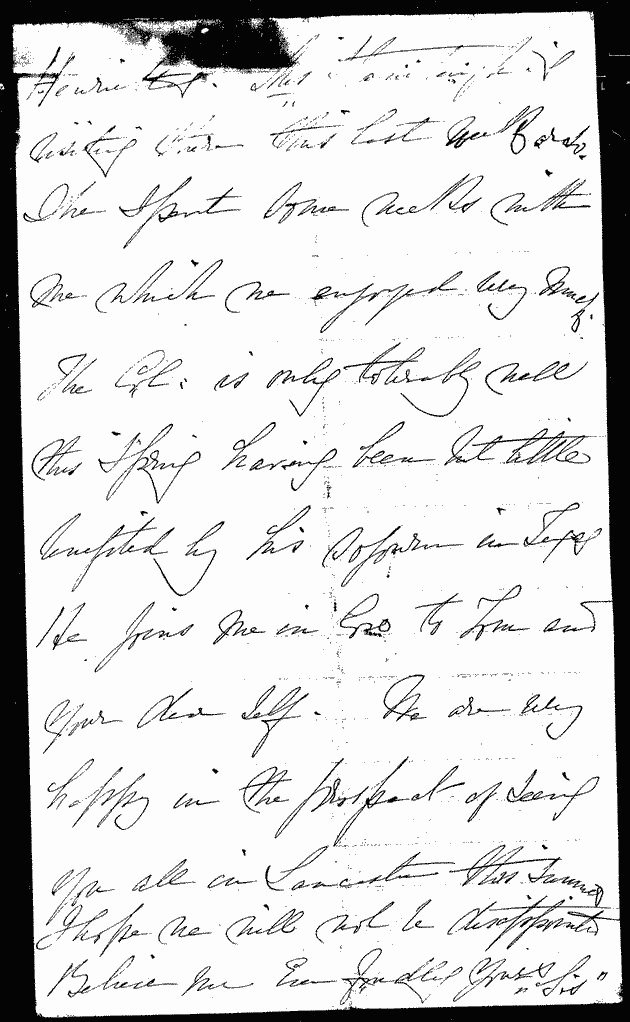 Henrietta. She
visiting there this last week
She Spent Some weeks with
me which we enjoyed very much.
The Col: is only tolerably well
this Spring having been but little
benefited by his sojourn in Texas
He joins me in love to Tom and
Your dear Self. We are very
happy in the prospect of Seeing
you all in Lancaster this Summer
I hope we will not be disappointed
Believe me Ever fondly Yours "Sis"